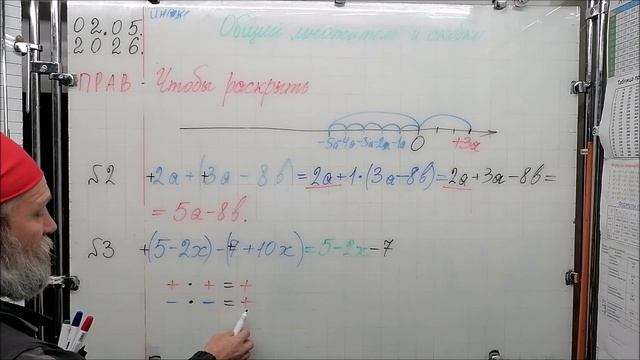 02.05.
2026.
Общий множитель и скобки.
ПРАВ - Чтобы раскрыть
-5a -4a -3a -2a -1a 0 +3a
№2 +2a+(+3a-8b)=2a+1·(3a-8b)=2a+3a-8b=
=5a-8b.
№3 +(5-2x)-(+7+10x)=5-2x-7
+ · + = +
- · - = +